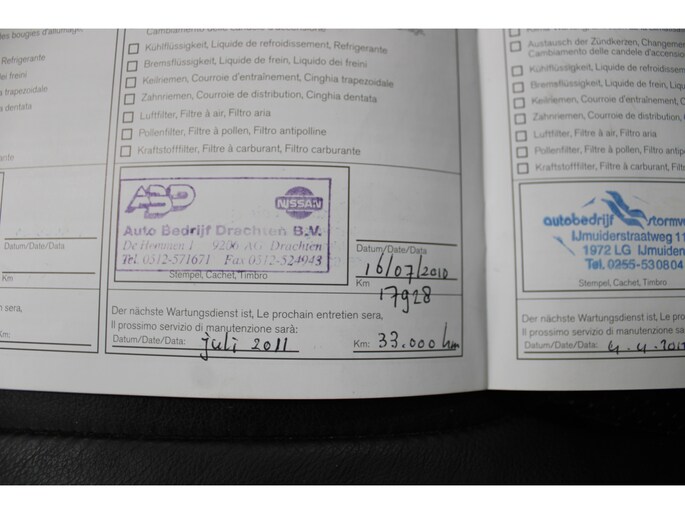 des bougies d'allumage,
Refrigerante
dei freini
trapezoidale
dentata
ante
Datum/Date/Data
Km
sera,
Km:
Cambiamento delle candele d'accensione
Kühlflüssigkeit, Liquide de refroidissement, Refrigerante
Bremsflüssigkeit, Liquide de frein, Liquido dei freini
Keilriemen, Courroie d'entraînement, Cinghia trapezoidale
Zahnriemen, Courroie de distribution, Cinghia dentata
Luftfilter, Filtre à air, Filtro aria
Pollenfilter, Filtre à pollen, Filtro antipolline
Kraftstofffilter, Filtre à carburant, Filtro carburante
ABD NISSAN
Auto Bedrijf Drachten B.V.
De Hemmen 1 9206 AG Drachten
Tel. 0512-571671 Fax 0512-524943
Stempel, Cachet, Timbro
Datum/Date/Data
16/07/2010
Km
17928
Der nächste Wartungsdienst ist, Le prochain entretien sera,
Il prossimo servizio di manutenzione sarà:
Datum/Date/Data: juli 2011 Km: 33.000 km
Austausch der Zündkerzen, Changeme
Cambiamento delle candele d'accens
Kühlflüssigkeit, Liquide de refroidissem
Bremsflüssigkeit, Liquide de frein, Liqu
Keilriemen, Courroie d'entraînement, C
Zahnriemen, Courroie de distribution,
Luftfilter, Filtre à air, Filtro aria
Pollenfilter, Filtre à pollen, Filtro antipo
Kraftstofffilter, Filtre à carburant, Filtr
autobedrijf stormv
IJmuiderstraatweg 11
1972 LG IJmuiden
Tel. 0255-530804
Stempel, Cachet, Timbro
Der nächste Wartungsdienst ist, Le proch
Il prossimo servizio di manutenzione sa
Datum/Date/Data: 4.4.201